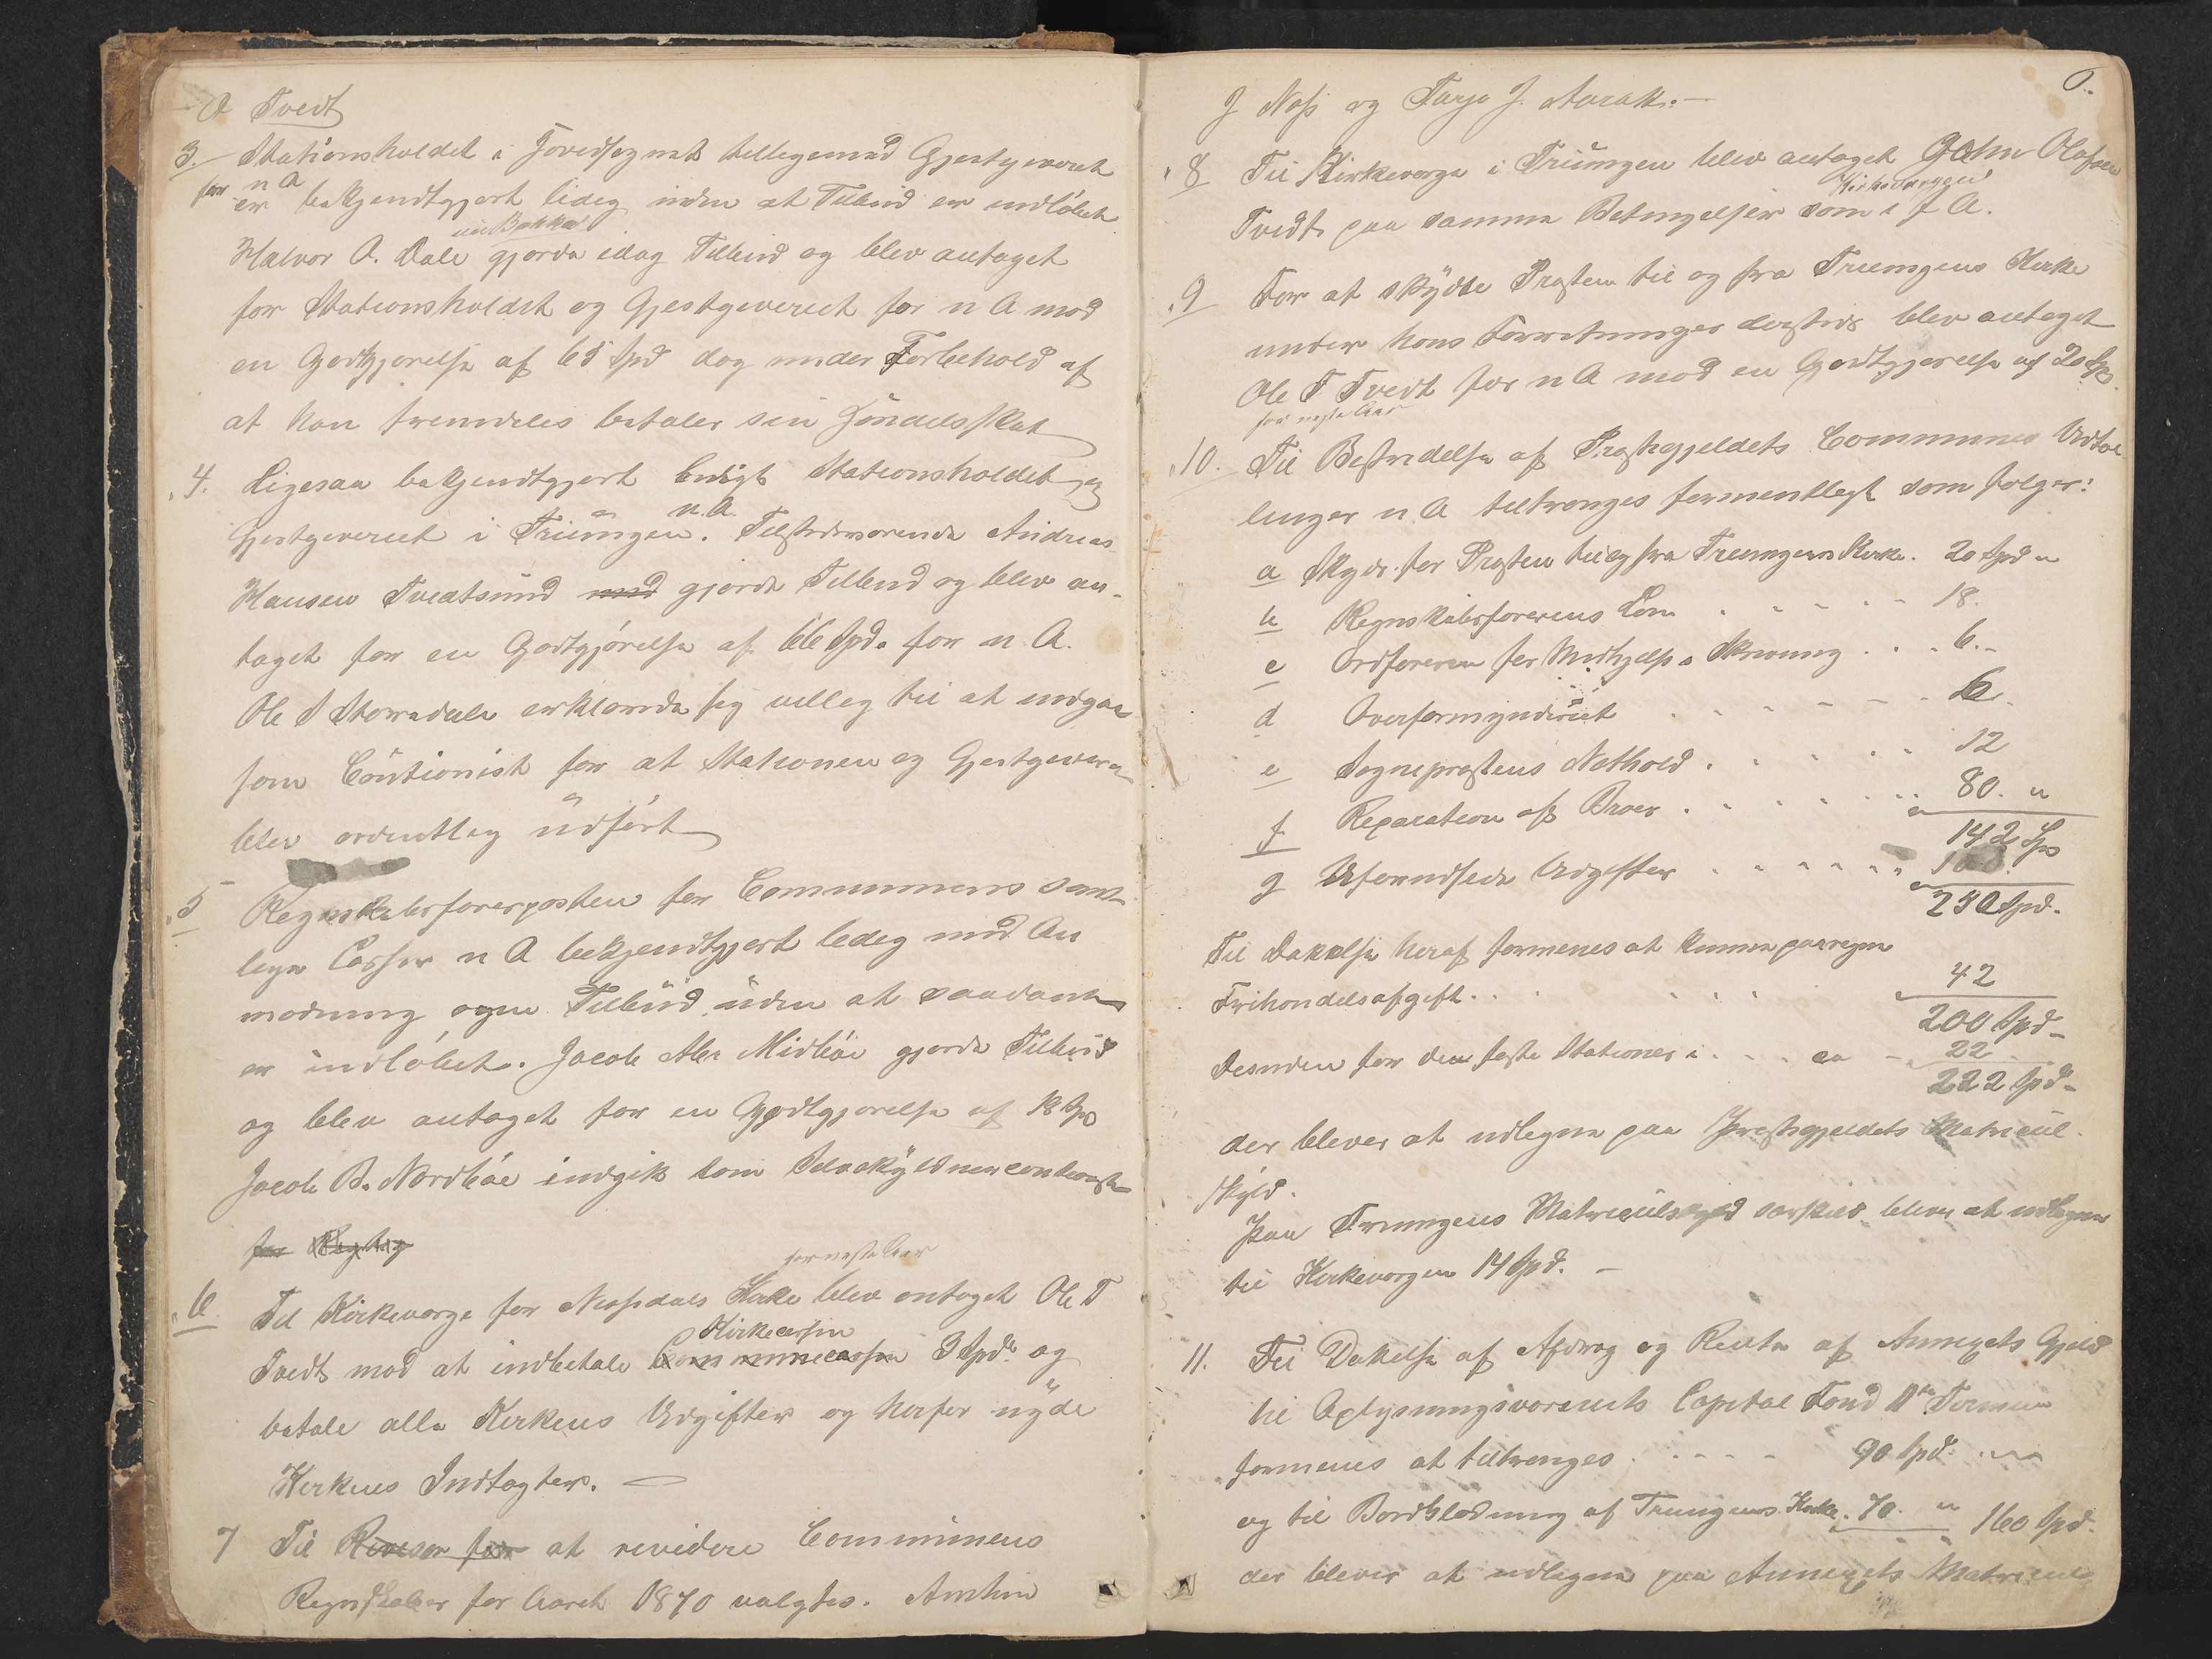 O Tvedt
3. Stationsholdet i Hovedsognet tilligemed Gjestgeveriet
for n A
er bekjendtgjort ledig uden at Tilbud er indløbet
ui Bakka
Halvor O. Dale gjorde idag Tilbud og blev antaget
for Stationsholdet og Gjestgeveriet for n A mod
en Godtgjørelse af 65 Spd dog under Forbehold af
at han fremdeles betaler sin Handelsskat
4. Ligesaa bekjendtgjort ledigt Stationsholdet og
n. A.
Gjestgeveriet i Triungen. Tilstedeværende Andreas
Hansen Tveitsund med gjorde Tilbud og blev an-
taget for en Godtgjørelse af 66 Spd. for n. A.
Ole S Storedale erklærede sig villig til at indgaa
som Cautionist for at Stationen og Gjestgeveriet
blev ordentlig udført
5 Regnskabsførerposten for Communens samt-
lige Casser n A bekjendtgjort ledig med An
modning ogm Tilbud uden at saadant
er indløbet. Jacob Abr Midbøe gjorde Tilbud
og blev antaget for en Godtgjørelse af 18 Spd
Jacob B. Nordbøe indgik som Selvskyldnercautionist
for
for næste Aar
6. Til Kirkeværge for Nissedals Kirke blev antaget Ole T
Kirkecassen
Tvedt mod at indbetale Communecassen 3 Spd og
betale alle Kirkens Udgifter og herfor nyde
Kirkens Indtægter. —
7 Til Revisor for at revidere Communens
Regnskaber for Aaret 1870 valgtes. Anthin
6.
J Næs og Tarje J. Aarak. —
8 Til Kirkeværge i Triungen blev antaget John Olafsen
Kirkeværgen
Tvedt paa samme Betingelser som i f A.
9 For at skydse Præsten til og fra Triungens Kirke
under hans Forretninger dersteds blev antaget
Ole T Tvedt for n A mod en Godtgjørelse af 20 Spd.
for næste Aar
10. Til Bestridelse af Præstegjeldets Communes Udtæl
linger n. A tiltrænges formentlegt som følger:
a Skyds for Præsten til og fra Triungens Kirke. 20 Spd "
b Regnskabsførerens Løn . . . . 18.
c Ordføreren for Medhjelp a Skrivning . . . 6. -
d Overformynderiet . . . . 6.
e Sognepræstens Nathold . . . . 12
f Reparation af Broer . . . . 80. "
142 Spd
g Uforudsede Udgifter . . . . 100
250 Spd.
Til Dækkelse heraf formenes at kunne paaregne
Frihandelsafgift . . . . 42
200 Spd -
Desuden for den faste Stationer i . . . 22
222 Spd -
der bliver at udlegne paa Præstegjeldets Matricul-
skyld.
Paa Triungens Matriculskyld særskilt bliver at udlegne
til Kirkeværgen 14 Spd. —
11. Til Dækelse af Afdrag og Renter af Annexets Gjeld
til Oplysningsvæsenets Capital Fond 11te Termin
formenes at tiltrænges . . . . 90 Spd.
og til Bordklædning af Triungens Kirke. 70. " 160 Spd.
der bliver at udlegne paa Annexets Matricul